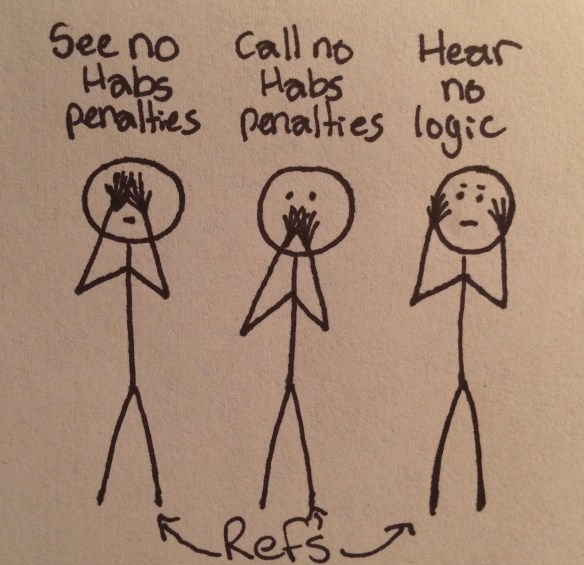 See no
Habs
penalties
Call no
Habs
penalties
Hear
no
logic
Refs